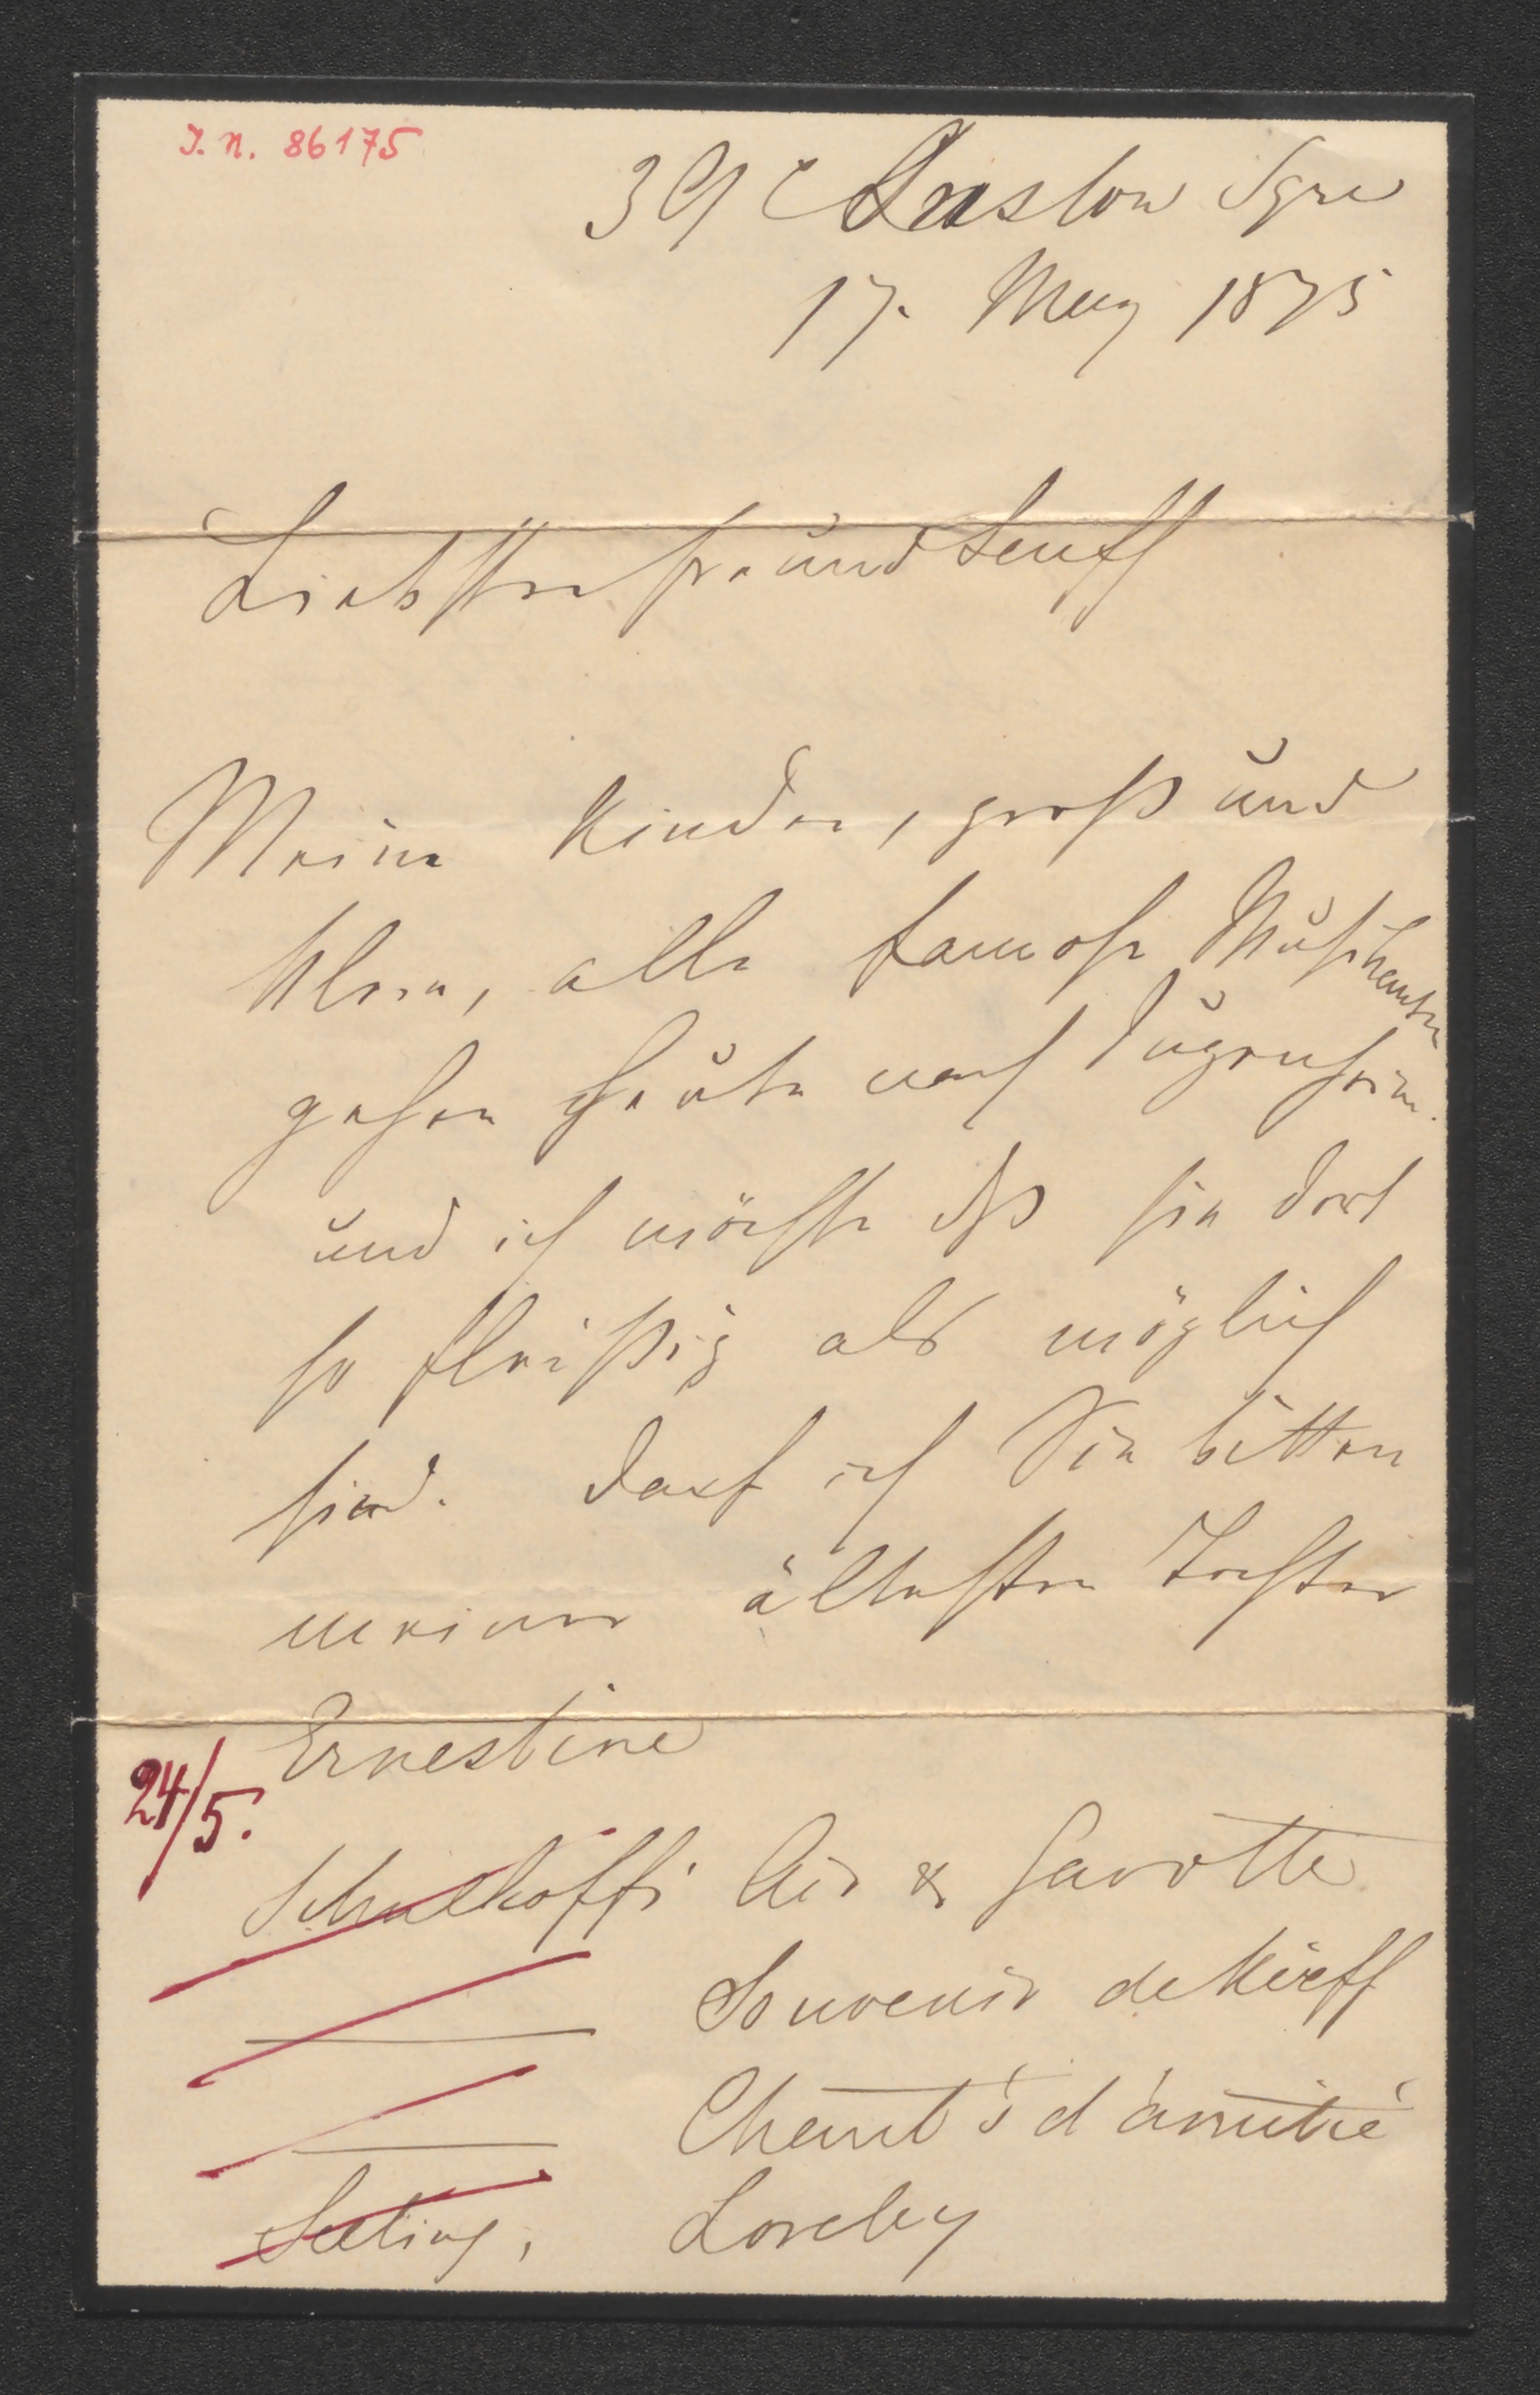 I. N. 86175
39 Onslow Sqre
17. May 1875
Liebster Freund Senff
Meine Kinder, groß und
klein, alle famose Musikanten
gehen heute nach Jugenheim.
und ich möchte dß sie dort
so fleißig als möglich
sind. Darf ich Sie bitten
meiner ältesten Tochter
Ernestine
24/5.
Schulhoffs Air & Gavotte
Souvenir de Kieff
Chant's d'amitié
Seeling, Loreley